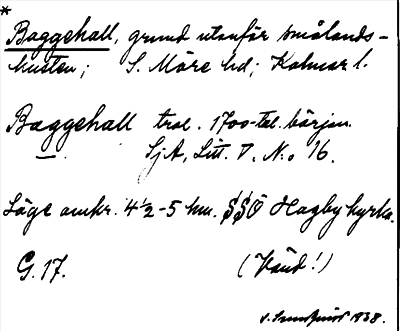 *
Baggehall, grund utanför smålands-
kusten; S. Möre hd; Kalmar l.
Baggehall trol. 1700-tal. början.
SjA, Litt. D. N:o 16.
Läge omkr. 4½-5 km. SSÖ Hagby kyrka.
G. 17. (Vänd!)
1938.